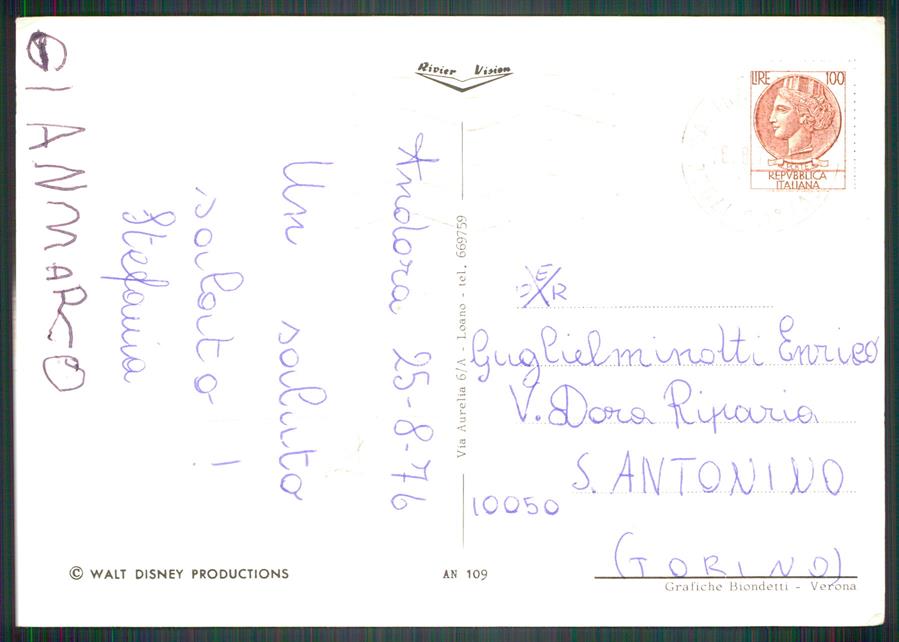 Rivier Vision
LIRE 100
REPVBBLICA
ITALIANA
Andora 25-8-76
Un saluto
salato!
Stefania
GIANMARCO
Via Aurelia 6/A - Loano - tel. 669759
Guglielminotti Enrico
V. Dora Riparia
S. ANTONINO
10050
(TORINO)
© WALT DISNEY PRODUCTIONS
AN 109
Grafiche Biondetti - Verona